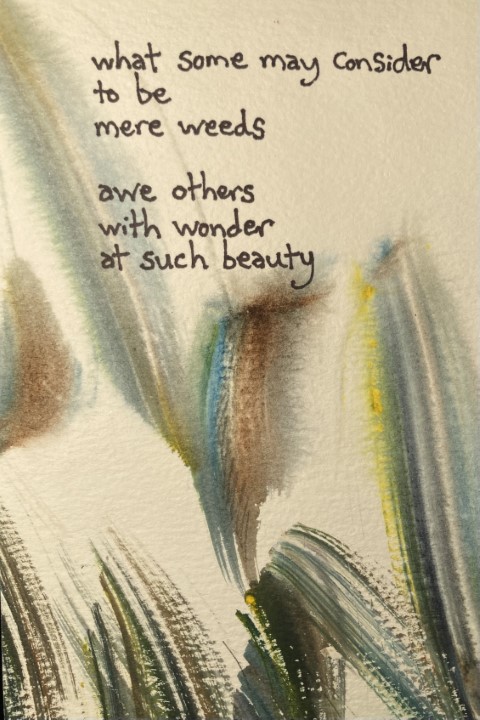 what some may consider
to be
mere weeds
awe others
with wonder
at such beauty